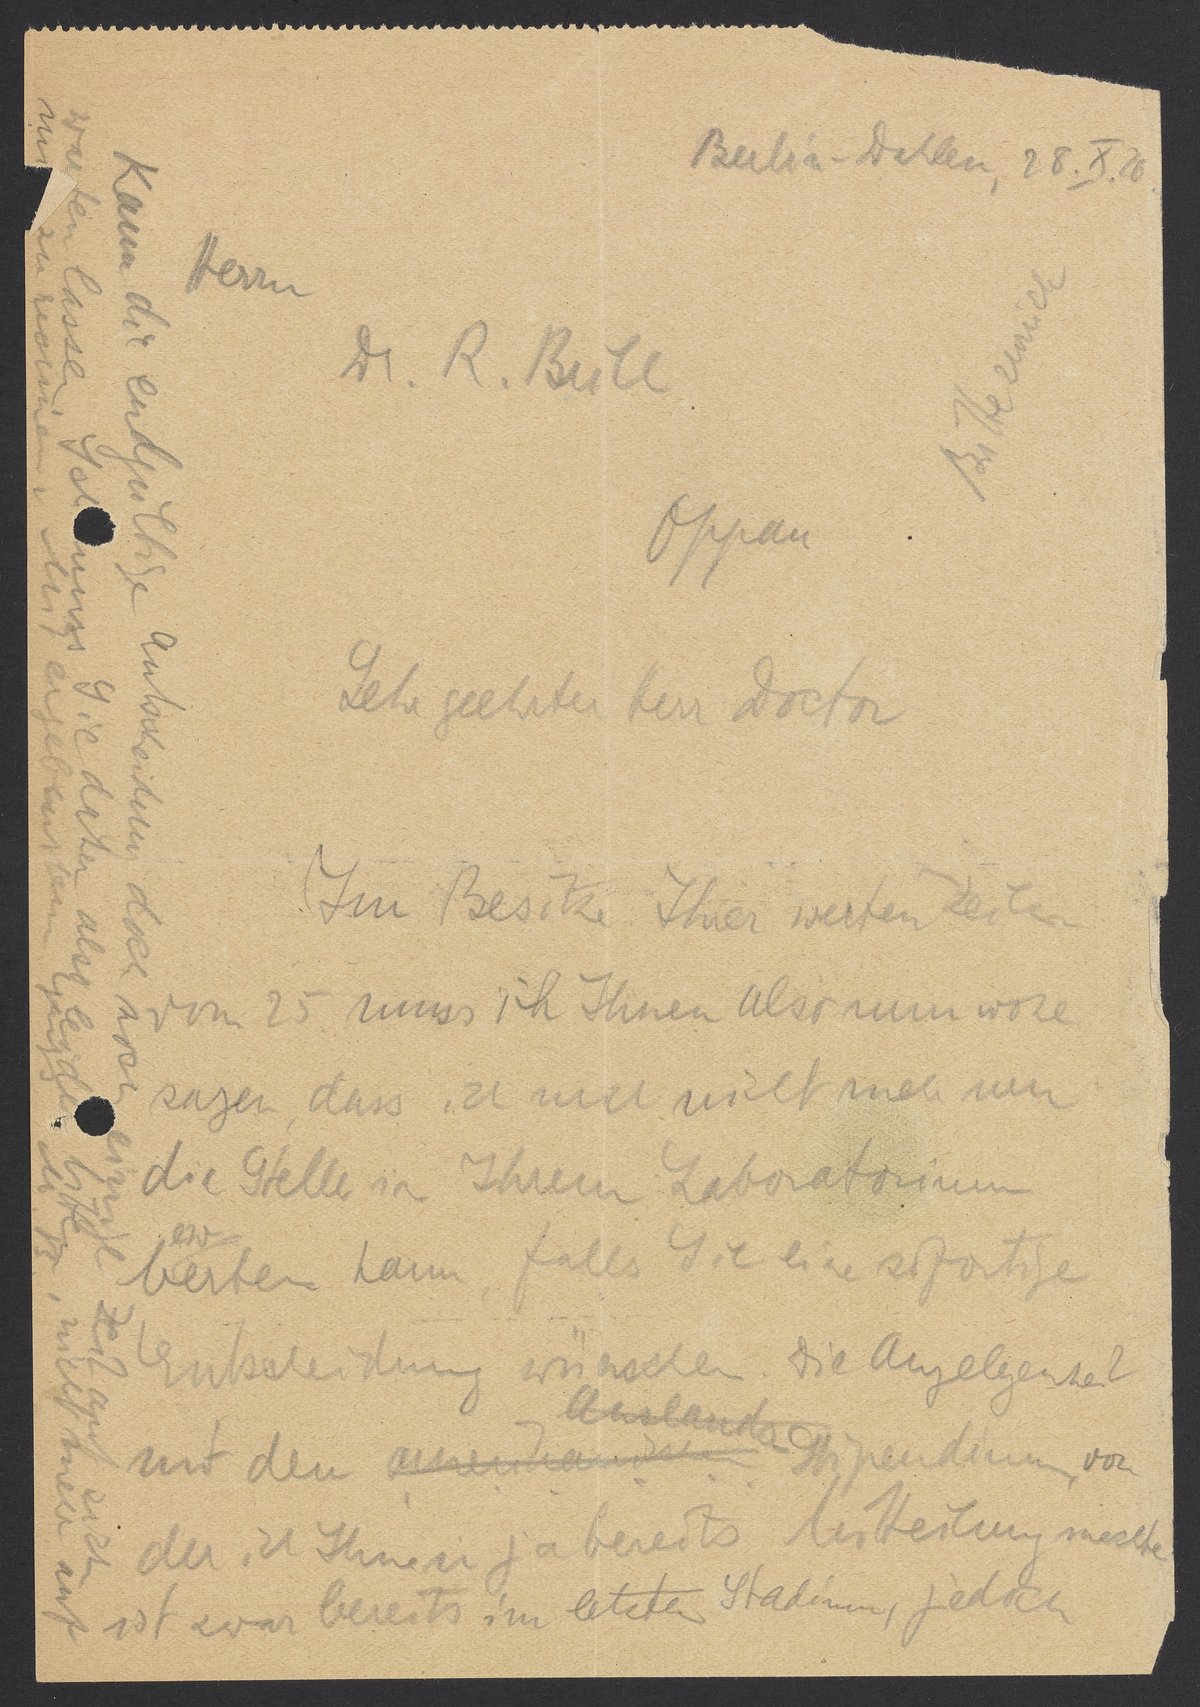 Berlin-Dahlem, 28. X. 26.
Herrn
Dr. R. Brill
Oppau
Sehr geehrter Herr Doctor
Im Besitze Ihrer werten Zeilen
vom 25. muss ich Ihnen also nun wohl
sagen, dass ich mich nicht mehr um
die Stelle in Ihrem Laboratorium
bewerben kann, falls Sie eine sofortige
Entscheidung wünschen. Die Angelegenheit
mit dem amerikanischen Auslands-Stipendium, von
der ich Ihnen ja bereits Mitteilung machte
ist zwar bereits im letzten Stadium, jedoch
kann die endgültige Entscheidung doch noch einige Zeit auf sich
warten lassen. Ich muss Sie daher also leider bitten, nicht mehr auf
mich zu